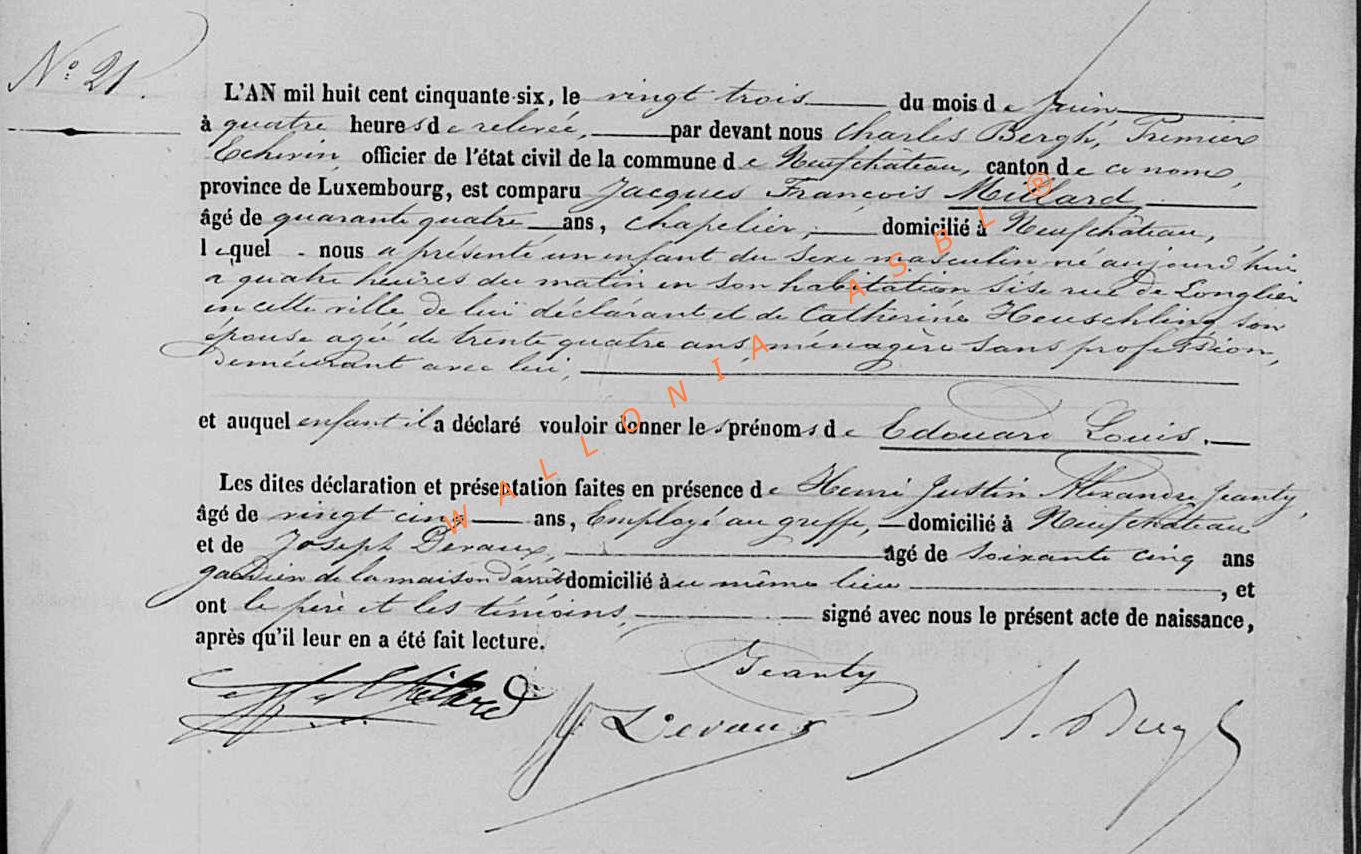 N° 21.
L'AN mil huit cent cinquante-six, le vingt trois du mois de Juin
à quatre heures de relevée, par devant nous Charles Bergh, Premier
Echevin officier de l'état civil de la commune de Neufchâteau, canton de ce nom,
province de Luxembourg, est comparu Jacques François Millard
âgé de quarante quatre ans, chapelier, domicilié à Neufchâteau,
lequel nous a présenté un enfant du sexe masculin né aujourd'hui
a quatre heures du matin en son habitation sise rue de Longlier
en cette ville de lui déclarant et de Catherine Heuschling son
épouse agée de trente quatre ans, ménagère sans profession,
demeurant avec lui,
et auquel enfant il a déclaré vouloir donner les prénoms de Edouard Louis.
Les dites déclaration et présentation faites en présence de Henri Justin Alexandre Jeanty,
âgé de vingt cinq ans, Employé au greffe, domicilié à Neufchâteau
et de Joseph Devaux, âgé de soixante cinq ans
gardien de la maison d'arrêt domicilié au même lieu, et
ont le père et les témoins, signé avec nous le présent acte de naissance,
après qu'il leur en a été fait lecture.
Jeanty
Devaux
WALLONIA ASBL ®